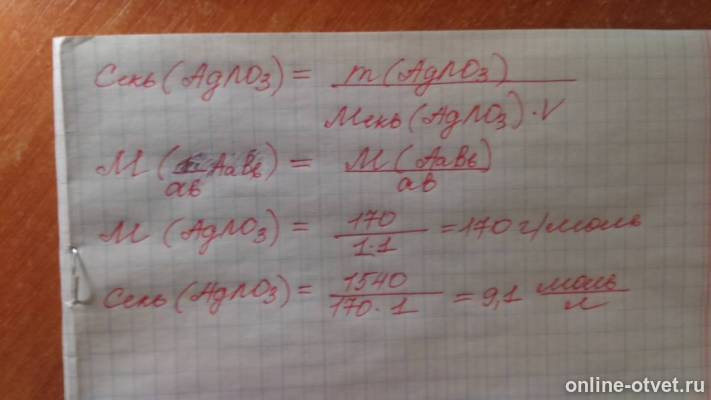 Cекв(AgNO3) = m(AgNO3) / Мекв(AgNO3)·V
М(AaBв / aв) = М(AaBв) / aв
М(AgNO3) = 170 / 1·1 = 170 г/моль
Секв(AgNO3) = 1540 / 170·1 = 9,1 моль / л
online-otvet.ru